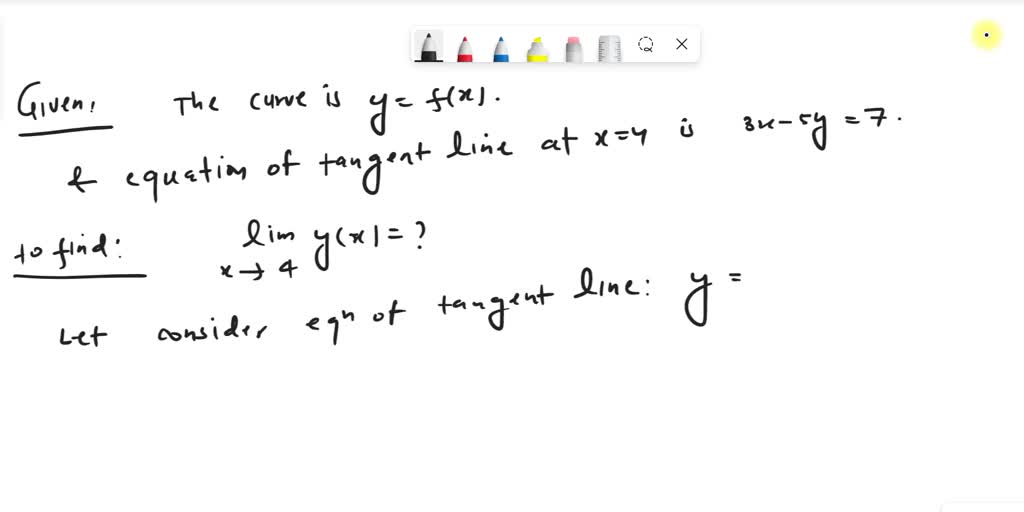 Given: The curve is y = f(x).
& equation of tangent line at x=4 is 3x-5y=7.
to find: lim y(x)=?
x→4
Let consider eqn of tangent line: y =